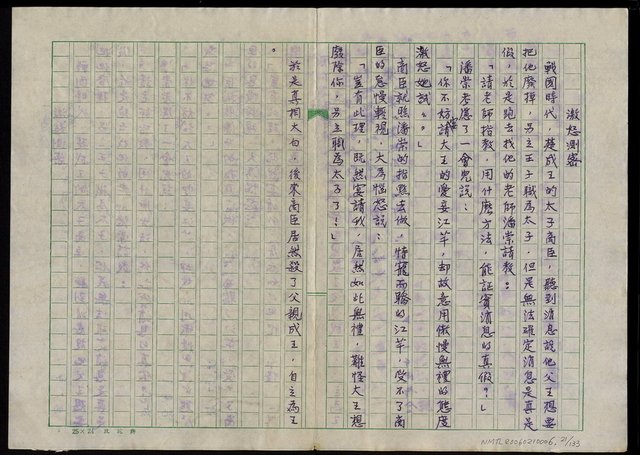 激怒測密
戰國時代，楚成王的太子商臣，聽到消息說他父王想要
把他廢掉，另立王子職為太子，但是無法確定消息是真是
假，於是跑去找他的老師潘崇請教：
「請老師指教，用什麼方法，能証實消息的真假？」
潘崇考慮了一會兒說：
「你不妨請大王的愛妾江芈，却故意用傲慢無禮的態度
激怒她試試。」
商臣就照潘崇的指點去做，恃寵而驕的江芈，受不了商
臣的怠慢輕視，大為惱怒說：
「豈有此理，既然宴請我，居然如此無禮，難怪大王想
廢除你，另立職為太子了！」
於是真相大白，後來商臣居然殺了父親成王，自立為王
。
25×24
NMTL20060210006 21/133